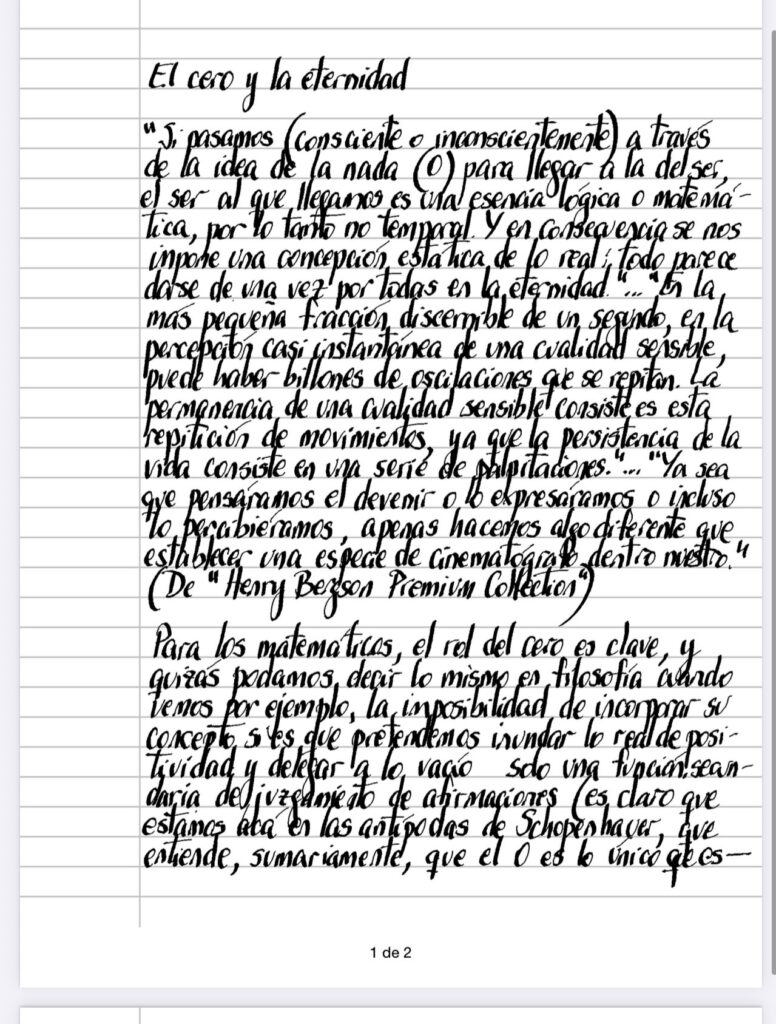 El cero y la eternidad
"Si pasamos (consciente o inconscientemente) a través
de la idea de la nada (0) para llegar a la del ser,
el ser al que llegamos es una esencia lógica o matemá-
tica, por lo tanto no temporal. Y en consecuencia se nos
impone una concepción estática de lo real; todo parece
darse de una vez por todas en la eternidad."... "En la
más pequeña fracción discernible de un segundo, en la
percepción casi instantánea de una cualidad sensible,
puede haber billones de oscilaciones que se repitan. La
permanencia de una cualidad sensible consiste es esta
repitición de movimientos, ya que la persistencia de la
vida consiste en una serie de palpitaciones."... "Ya sea
que pensáramos el devenir o lo expresáramos o incluso
lo percibiéramos, apenas hacemos algo diferente que
establecer una especie de cinematógrafo dentro nuestro."
(De "Henry Bergson Premium Collection")
Para los matemáticos, el rol del cero es clave, y
quizás podamos decir lo mismo en filosofía cuando
vemos por ejemplo, la imposibilidad de incorporar su
concepto si es que pretendemos inundar lo real de posi-
tividad y delegar a lo vacío solo una función secun-
daria del juzgamiento de afirmaciones (es claro que
estamos acá en las antípodas de Schopenhauer, que
entiende, sumariamente, que el 0 es lo único que es-
1 de 2